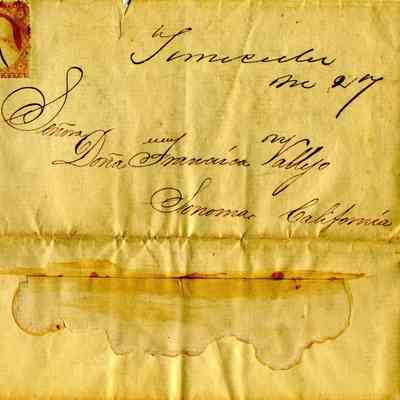 Temecula
27
Señora
Doña Francisca Vallejo
Sonoma, California